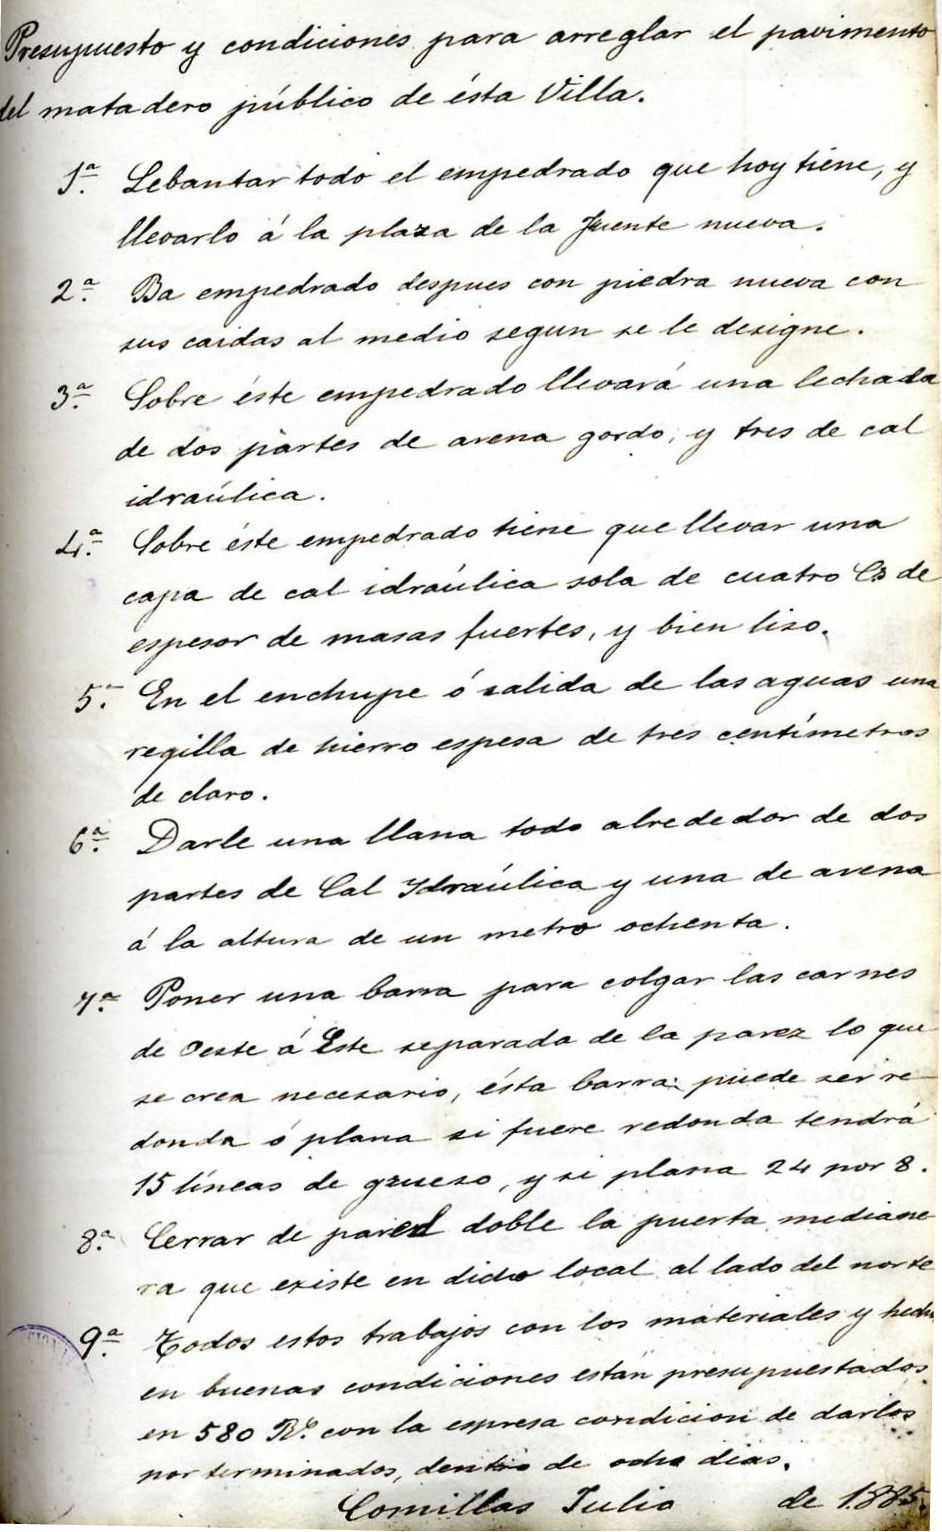 Presupuesto y condiciones para arreglar el pavimento
del matadero público de ésta Villa.
1ª. Lebantar todo el empedrado que hoy tiene, y
llevarlo á la plaza de la fuente nueva.
2ª. Ba empedrado despues con piedra nueva con
sus caidas al medio segun se le designe.
3ª. Sobre éste empedrado llevará una lechada
de dos partes de arena gordo, y tres de cal
idraúlica.
4ª. Sobre éste empedrado tiene que llevar una
capa de cal idraúlica sola de cuatro Cs de
espesor de masas fuertes, y bien liso.
5ª. En el enchupe ó salida de las aguas una
regilla de hierro espesa de tres centímetros
de claro.
6ª. Darle una llana todo alrededor de dos
partes de Cal Ydraúlica y una de arena
á la altura de un metro ochenta.
7ª. Poner una barra para colgar las carnes
de Oeste á Este separada de la parez lo que
se crea necesario, ésta barra puede ser re-
donda ó plana si fuere redonda tendrá
15 líneas de grueso, y si plana 24 por 8.
8ª. Cerrar de pared doble la puerta mediane
ra que existe en dicho local al lado del norte
9ª. Todos estos trabajos con los materiales y hechos
en buenas condiciones están presupuestados
en 580 Rs. con la espresa condicion de darlos
por terminados, dentro de ocho dias.
Comillas Julio de 1885.